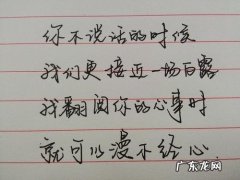 你不说话的时候
我们更接近一场白露
我翻阅你的心事时
就可以漫不经心
广东龙网